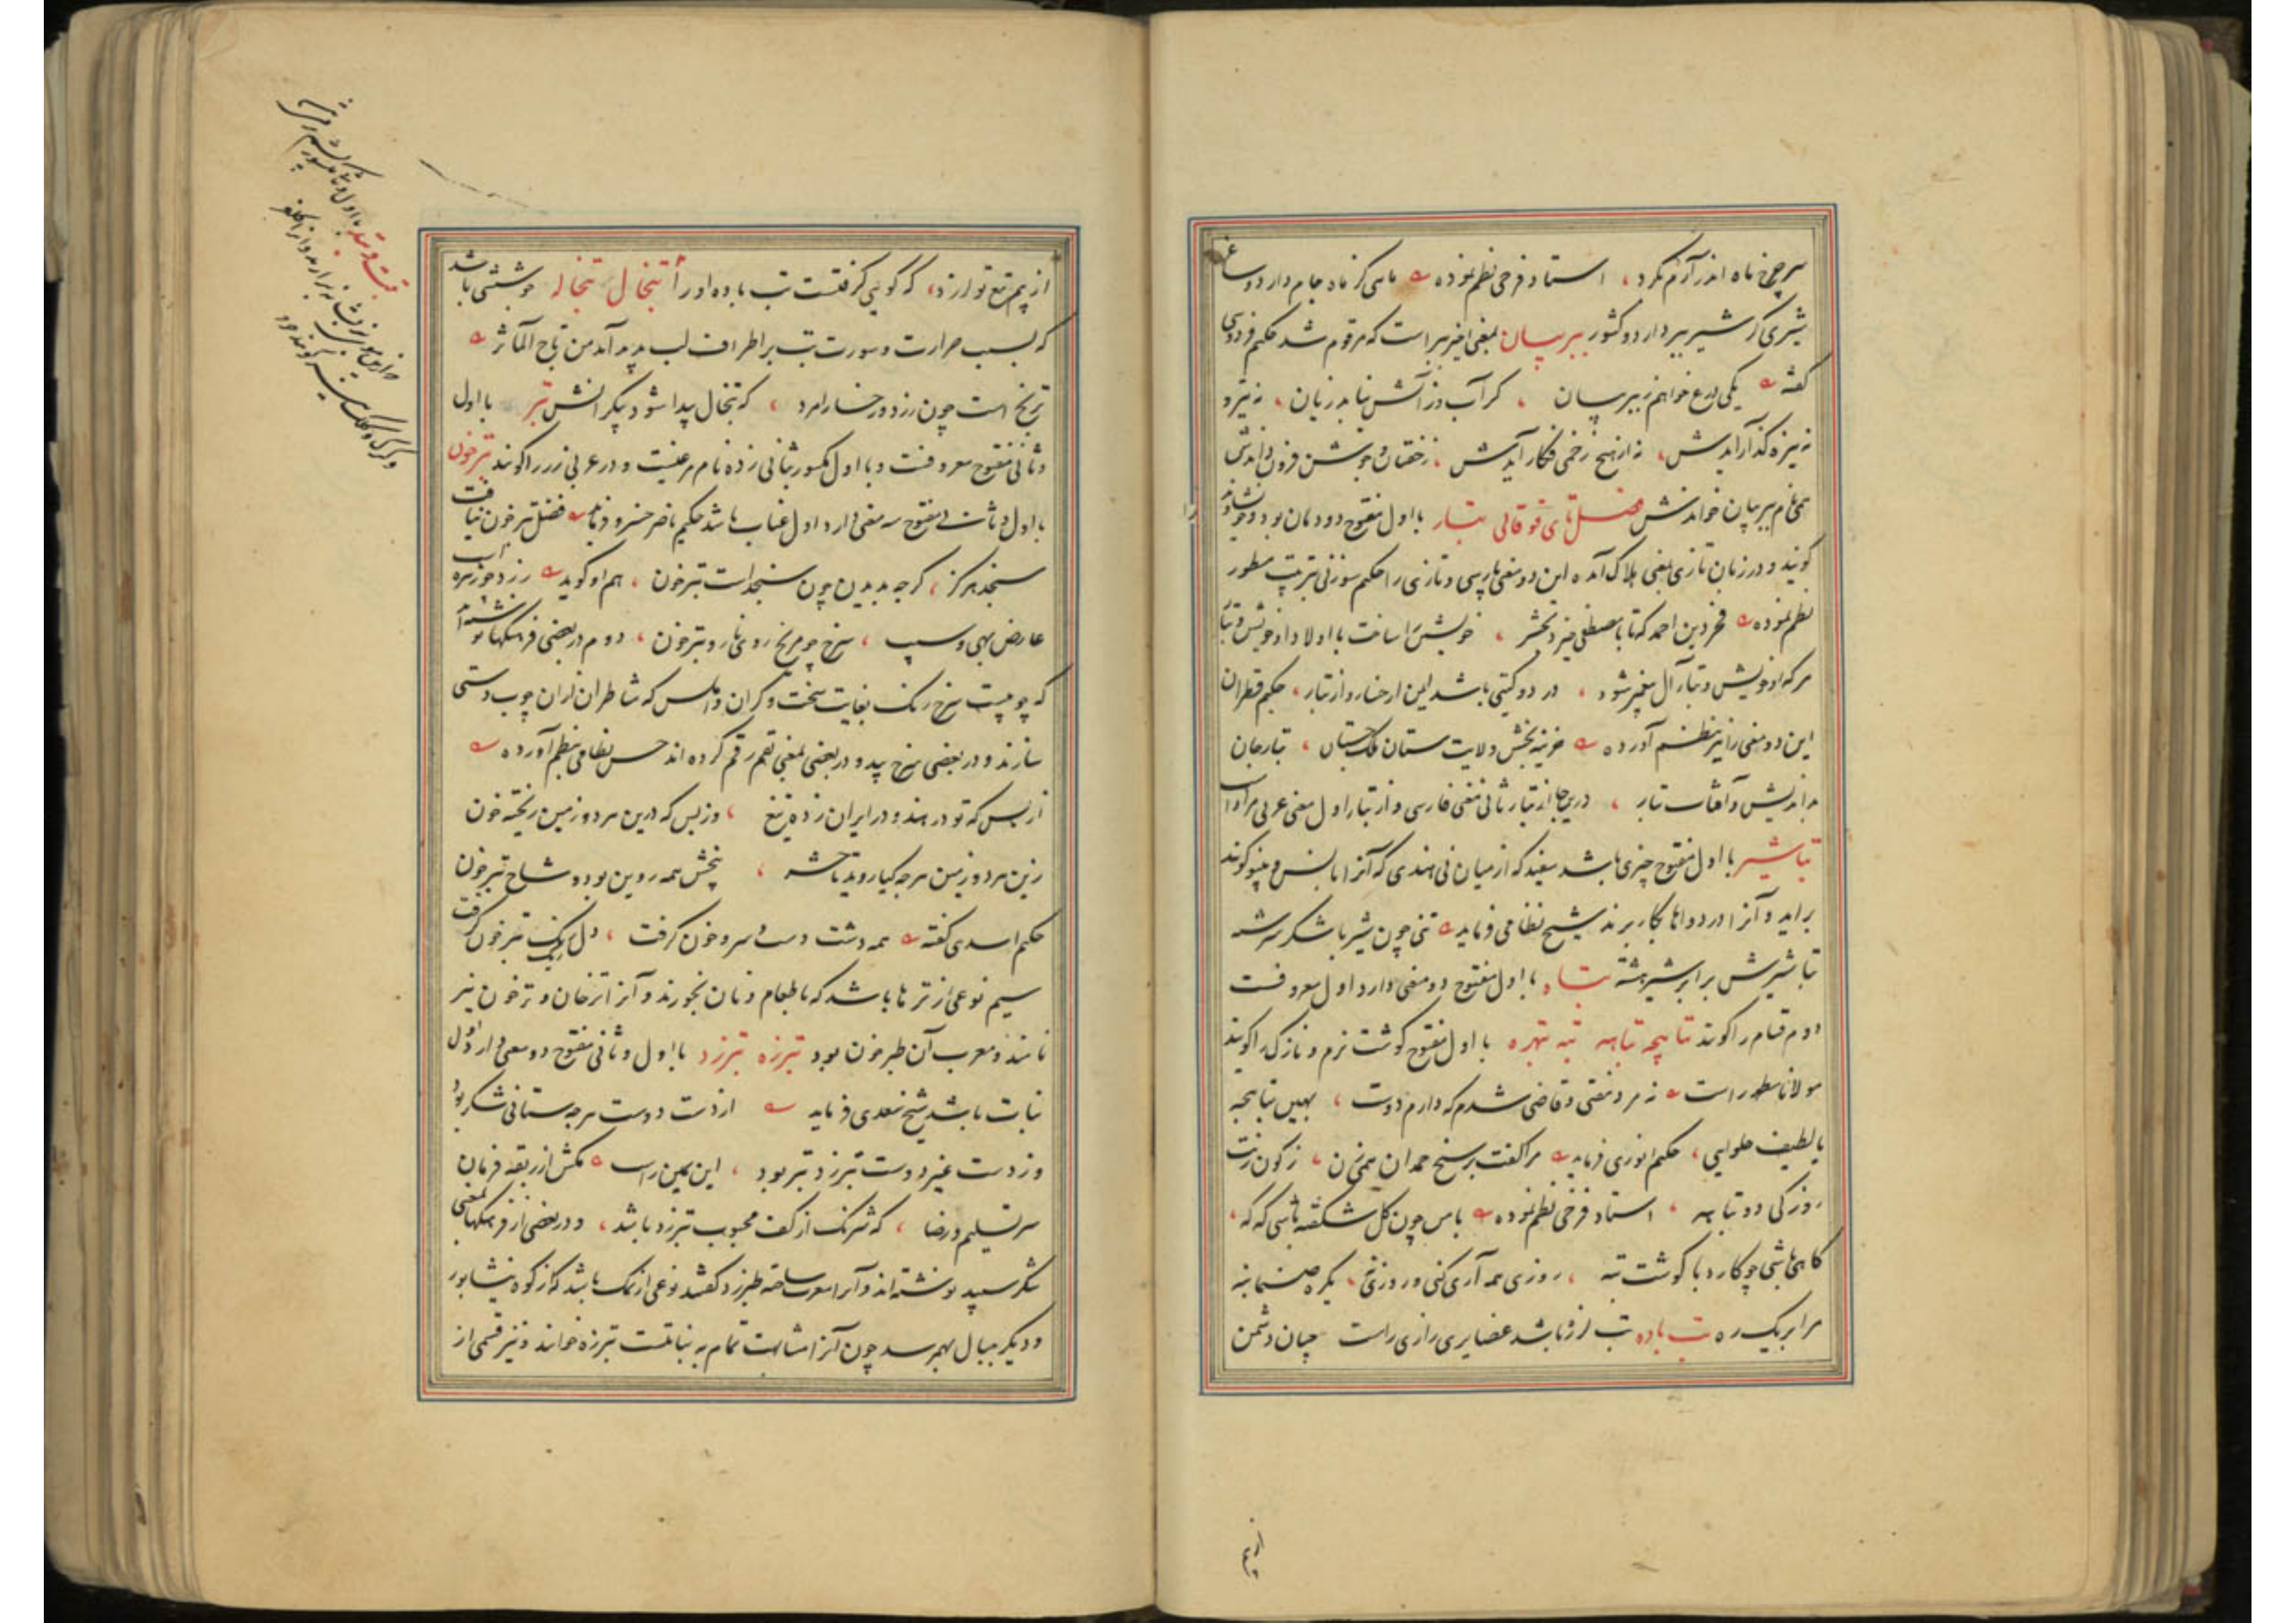 سرچرخ ماه اندر آزرم کرد، استاد فرخی نظم نموده ماهی کز ماه جام دارد و ساغر
شیری کز شیر ببر دارد و کشور ببر بیان بمعنی اخیر ببر است که مرقوم شد حکیم فردوسی
گفته یکی درع خواهم ز ببر بیان ، کز آب و ز آتش نیابد زیان ، نه تیر و
نه نیزه گذار آیدش، نه از هیچ زخمی فکار آیدش ، ز خفتان و جوشن فزون داندش
همی نام ببر بیان خواندش فصل تای فوقانی تبار با اول مفتوح دودمان بود و خویشاوند را
گویند و در زبان تازی بمعنی هلاک آمده این دو معنی پارسی و تازی را حکیم سوزنی بترتیب مسطور
نظم نموده فخر دین احمد که تا با مصطفی خیزد بحشر ، خویشتن را ساخت با اولاد او خویش و تبار
هر که او خویش و تبار آل پیغمبر شود ، در دو گیتی باشد ایمن از خسار و از تبار ، حکیم قطران
این دو معنی را نیز بنظم آورده خزینه بخش ولایت ستان ملک ، تبار جان
بداندیش و آفتاب تبار ، در ین جا از تبار ثانی معنی فارسی و از تبار اول معنی عربی مراد است
تباشیر با اول مفتوح چیزی باشد سفید که از میان نی هندی که آنرا بانس و پنبو گویند
برآید و آنرا در دواها بکار برند شیخ نظامی فرماید تنی چون شیر با شکر سرشته
تباشیرش برابر شیر هشته تباه با اول مفتوح دو معنی دارد اول معروفست
دوم قسام را گویند تباهچه تباهه تبه تبهره با اول مفتوح گوشت نرم و نازک را گویند
مولانا مطهر راست نه مرد مفتی و قاضی شدم که دارم دوست ، همین تباهچه
یا لطیف حلوایی ، حکیم انوری فرماید مرا گفت بر سیخ حمدان همی زن ، ز کون زنت
روزکی دو تباهه ، استاد فرخی نظم نموده با من چون گل شکفته باشی گه گه ،
گاهی باشی چو کارد با گوشت تبه ، روزی همه آری کنی و روزی نه ، یکره صنما بنه
مرا بر یک ره تب باده تب لرزه باشد عضایری رازی راست چنان دشمن
از بیم
از بیم تیغ تو لرزد ، که گویی گرفتست تب باده او را تبخال تبخاله جوششی باشد
که بسبب حرارت و سورت تب بر اطراف لب پدید آید من تاج المآثر
ترنج است چون زرد رخسار مرد ، که تبخال پیدا شود پیکر انش تبر با اول
و ثانی مفتوح معروفست و با اول مکسور بثانی زده نام مرغیست و در عربی زر را گویند تبرخون
با اول و ثالث مفتوح سه معنی دارد اول عناب باشد حکیم ناصر خسرو فرماید فضل تبرخون نیافت
سنجد هرگز ، گرچه بدیدن چون سنجد است تبرخون ، هم او گوید زرد چو زهره است
عارض بهی و سیب ، سرخ چو مریخ روی نار و تبرخون ، دوم در بعضی فرهنگها نوشته اند
که چوبیست سرخ رنگ بغایت سخت و گران و املس که شاطران ازان چوب دستی
سازند و در بعضی سرخ بید و در بعضی بمعنی بقم رقم کرده اند حسن نظامی بنظم آورده
از بس که تو در هند و در ایران زده تیغ ، وز بس که درین هر دو زمین ریخته خون
زین هر دو زمین هر چه گیا روید تا حشر ، بیخش همه روین بود و شاخ تبرخون
حکیم اسدی گفته همه دشت دست و سر و خون گرفت ، دل ریگ تبرخون گرفت
سیم نوعی از ترها باشد که با طعام و نان بخورند و آنرا ترخان و ترخون نیز
نامند و معرب آن طبرخون بود تبرزه تبرزد با اول و ثانی مفتوح دو معنی دارد اول
نبات باشد شیخ سعدی فرماید از دست دوست هر چه ستانی شکر بود
وز دست غیر دوست تبرزد تبر بود ، ابن یمین راست مکش از ربقه فرمان
سر تسلیم و رضا ، که شرنگ از کف محبوب تبرزد باشد ، و در بعضی از فرهنگها بمعنی
شکر سپید نوشته اند و آنرا معرب ساخته طبرزد گفتند نوعی از نمک باشد که از کوه نیشابور
و دیگر جبال بهم رسد چون آنرا مشابهت تمام به نباتست تبرزه خوانند و نیز قسمی از